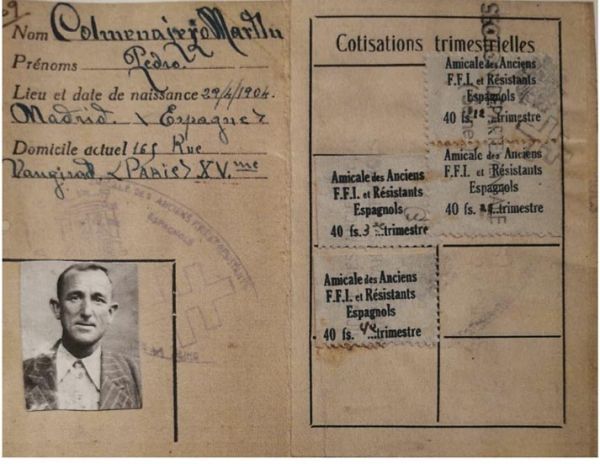 Nom Colmenajejo Martin
Prénoms Pedro.
Lieu et date de naissance 29/4/1904.
Madrid. (Espagne)
Domicile actuel 165 Rue
Vaugirad. (PARIS) XV.me
AMICALE DES ANCIENS FFI
ESPAGNOLS
Cotisations trimestrielles
Amicale des Anciens
F.F.I. et Résistants
Espagnols
40 fs. 1e ...trimestre
Amicale des Anciens
F.F.I. et Résistants
Espagnols
40 fs. 2e ...trimestre
Amicale des Anciens
F.F.I. et Résistants
Espagnols
40 fs. 3 ...trimestre
Amicale des Anciens
F.F.I. et Résistants
Espagnols
40 fs. 4e ...trimestre